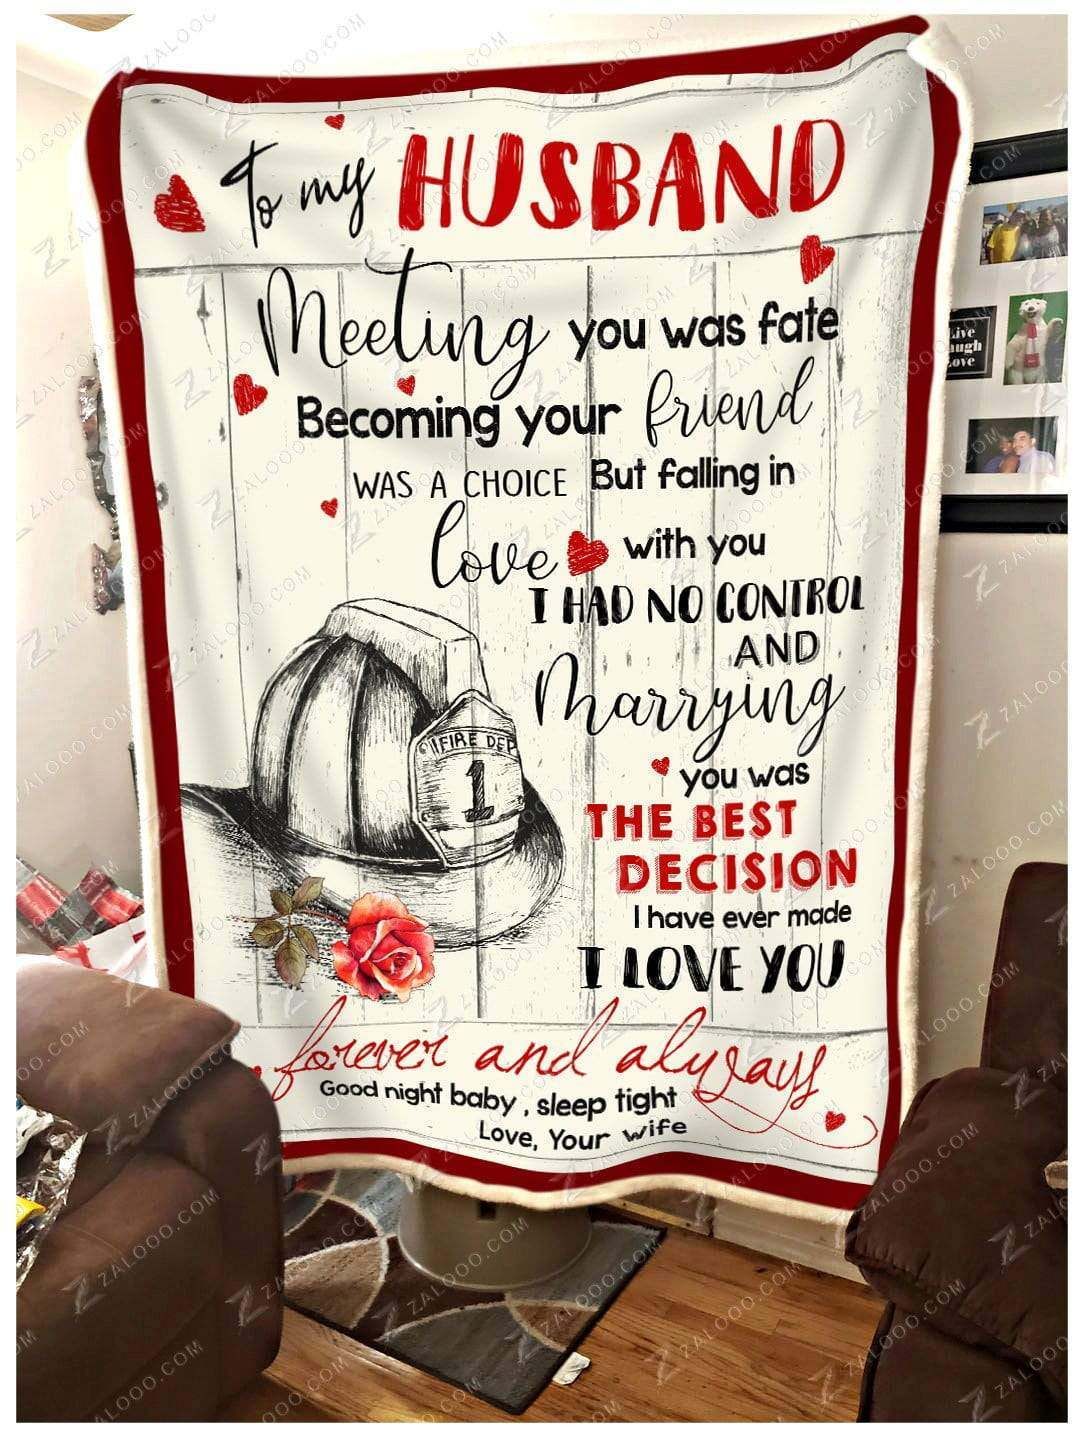 To my HUSBAND
Meeting you was fate
Becoming your friend
WAS A CHOICE But falling in
love with you
I HAD NO CONTROL
AND
Marrying
you was
THE BEST
DECISION
I have ever made
I LOVE YOU
forever and always
Good night baby , sleep tight
Love, Your wife
FIRE DEP
1
Live
augh
Love
ZALOOO.COM